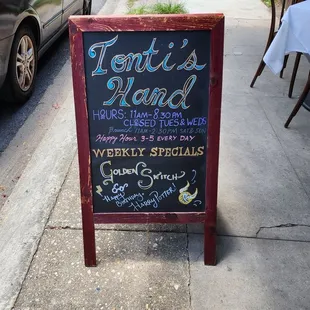 Tonti's
Hand
HOURS: 11AM-8:30PM
CLOSED TUES & WEDS
Brunch 11AM-2:30PM SAT & SUN
Happy Hour 3-5 EVERY DAY
WEEKLY SPECIALS
Golden Snitch
Happy
Birthday,
Harry Potter!